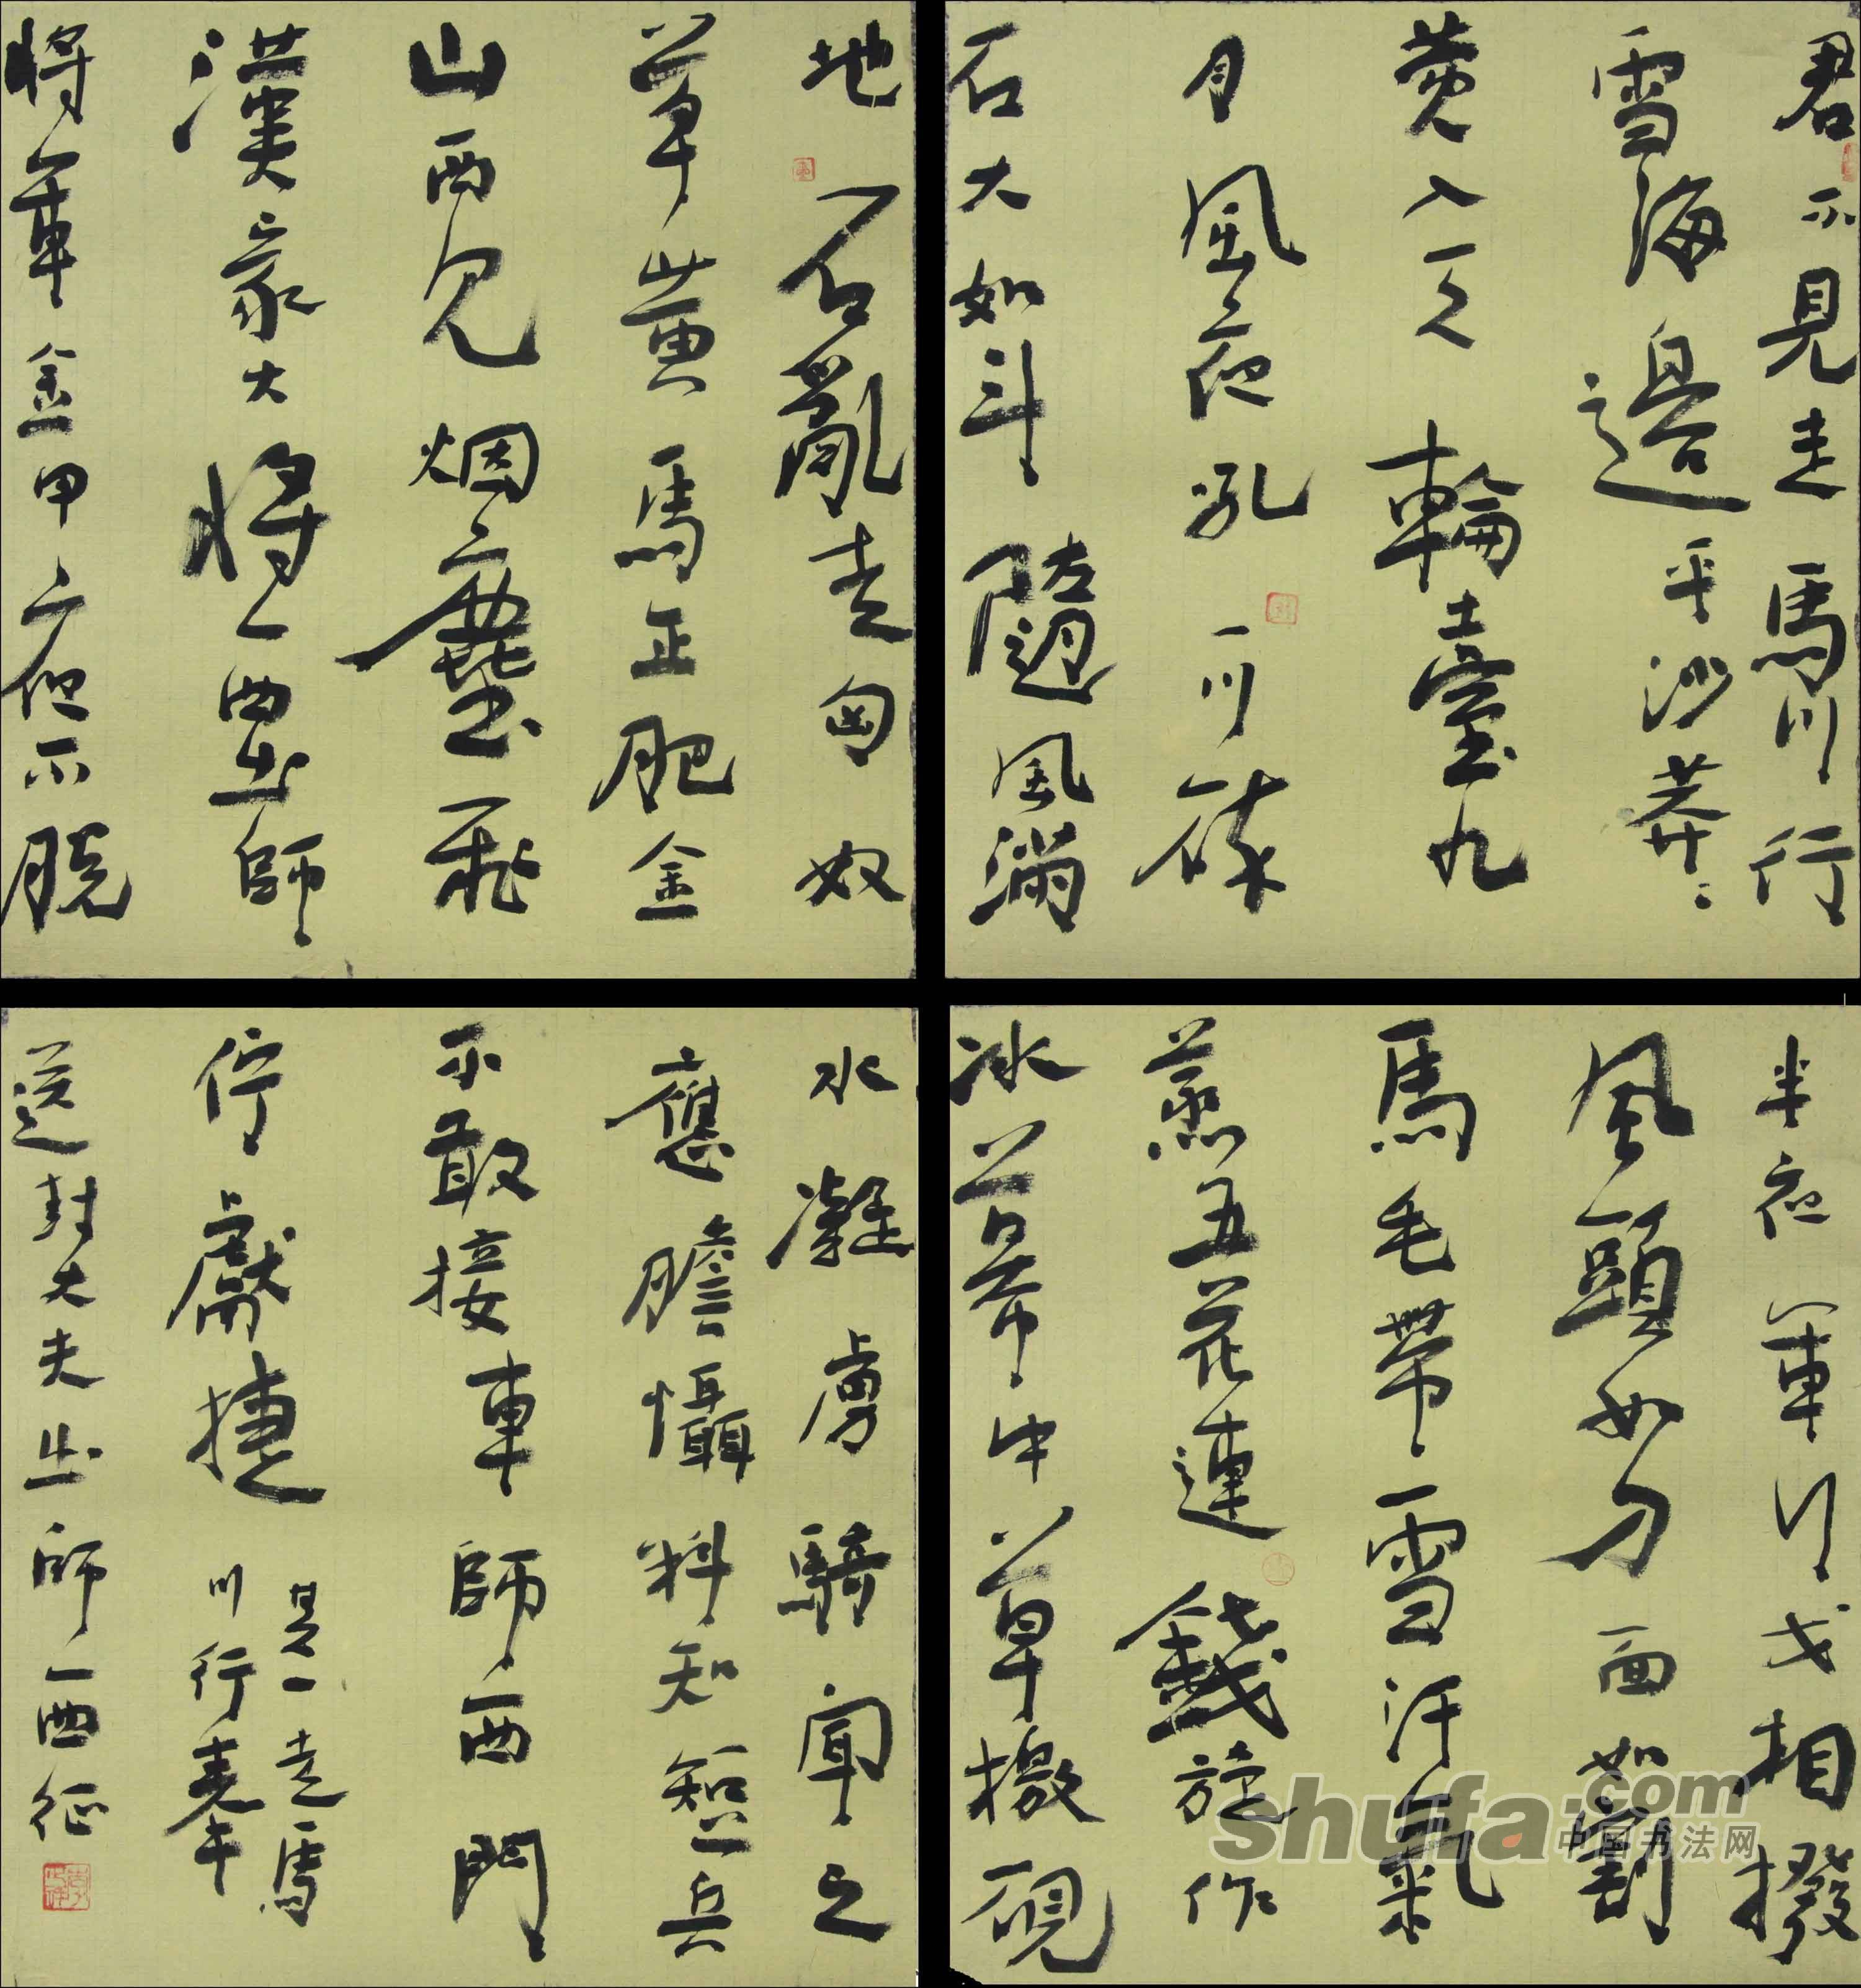 君不見走馬川行
雪海邊平沙莽莽
黄入天輪臺九
月風夜吼一川碎
石大如斗隨風滿
地石亂走匈奴
草黄馬正肥金
山西見烟塵飛
漢家大將西出師
將軍金甲夜不脱
半夜軍行戈相撥
風頭如刀面如割
馬毛帶雪汗氣
蒸五花連錢旋作
冰幕中草檄硯
水凝虜騎聞之
應膽懾料知短兵
不敢接車師西門
佇獻捷
走馬
川行奉
送封大夫出師西征
shufa.com
中国书法网